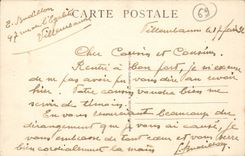 E. Budillon
CARTE POSTALE
69
47 rue
Villeurbanne
Villeurbanne le 17
Cher Cousin et Cousine.
Rentré à bon port, je m'excuse
de ne pas avoir pu vous dire au revoir
hier. Votre cousin voudra bien me
servir de témoin.
En vous remerciant beaucoup du
dérangement que je vous ai causé, je
vous embrasse de tout cœur et vous serre
bien cordialement la main